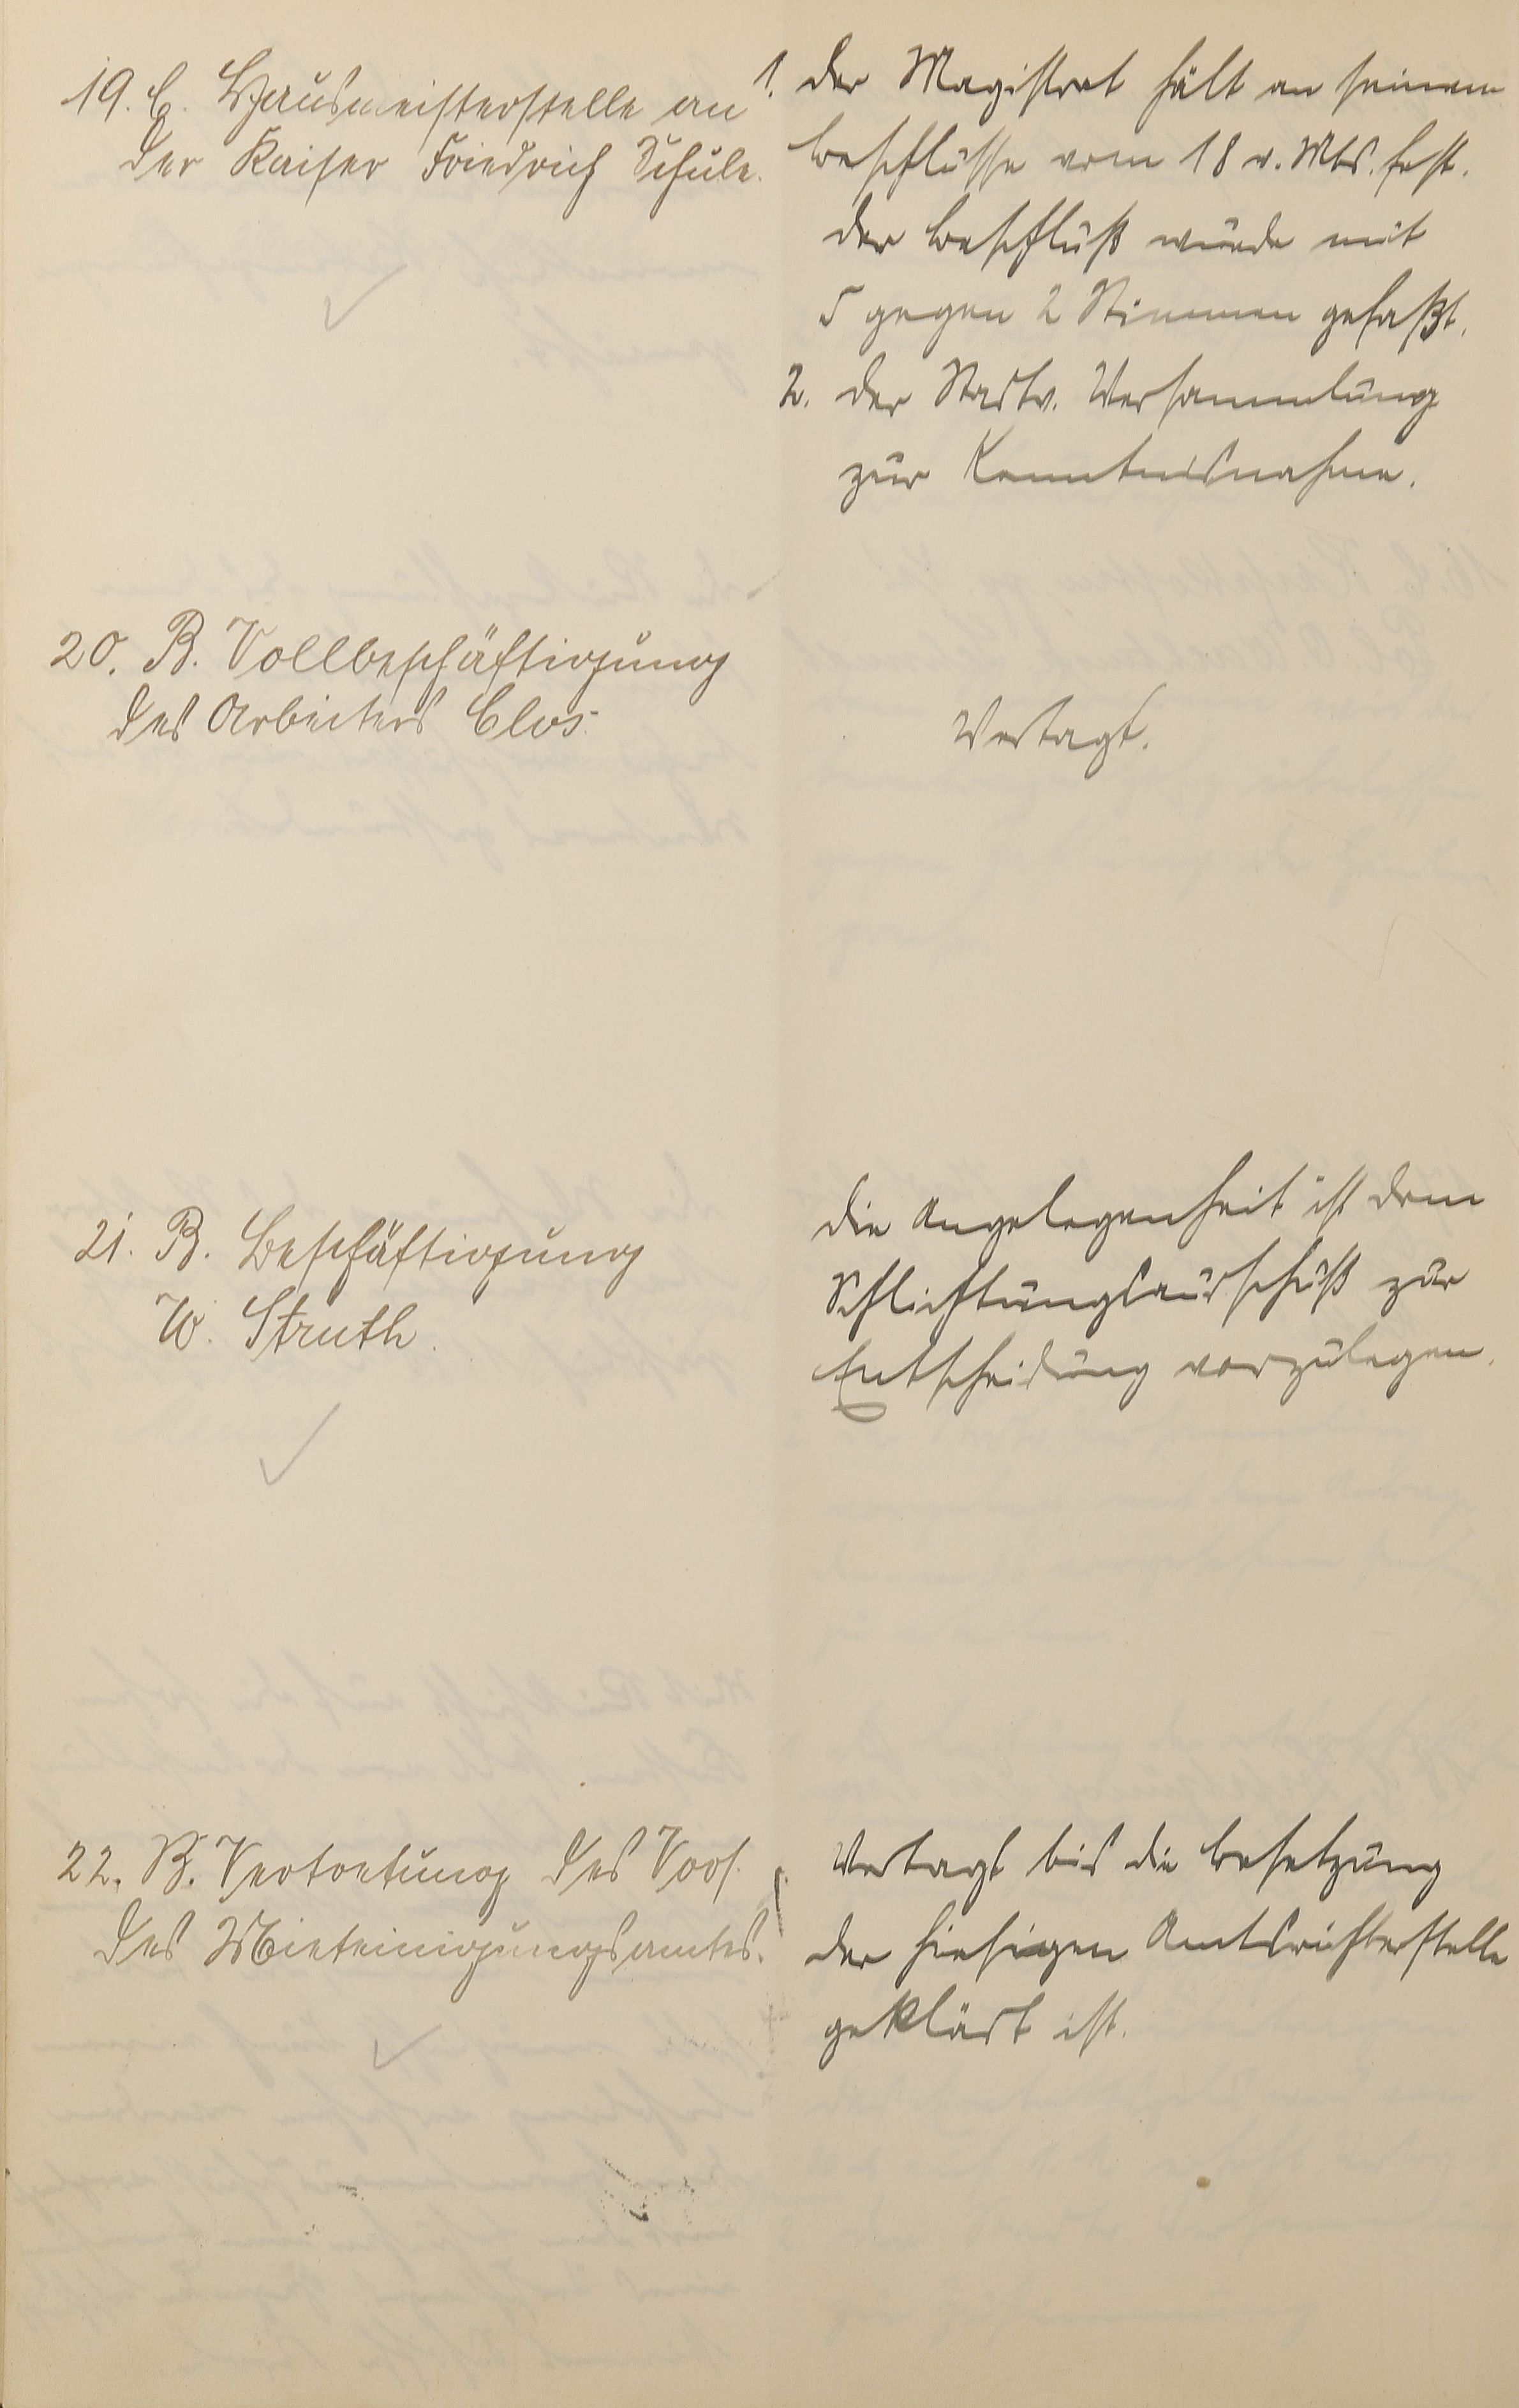 19. C. Hausmeisterstelle an
der Kaiser Friedrich Schule.
1. Der Magistrat hält an seinem
Beschlusse vom 18 v. Mts. fest.
Der Beschluß wurde mit
5 gegen 2 Stimmen gefaßt.
2. Der Stadtv. Versammlung
zur Kenntnisnahme.
20. B. Vollbeschäftigung
des Arbeiters Clos.
Vertagt.
21. B. Beschäftigung
W. Struth.
Die Angelegenheit ist dem
Schlichtungsausschuß zur
Entscheidung vorzulegen.
22. B. Vertretung des Vors.
des Mieteinigungsamtes.
Vertagt bis die Besetzung
der hiesigen Amtsrichterstelle
geklärt ist.